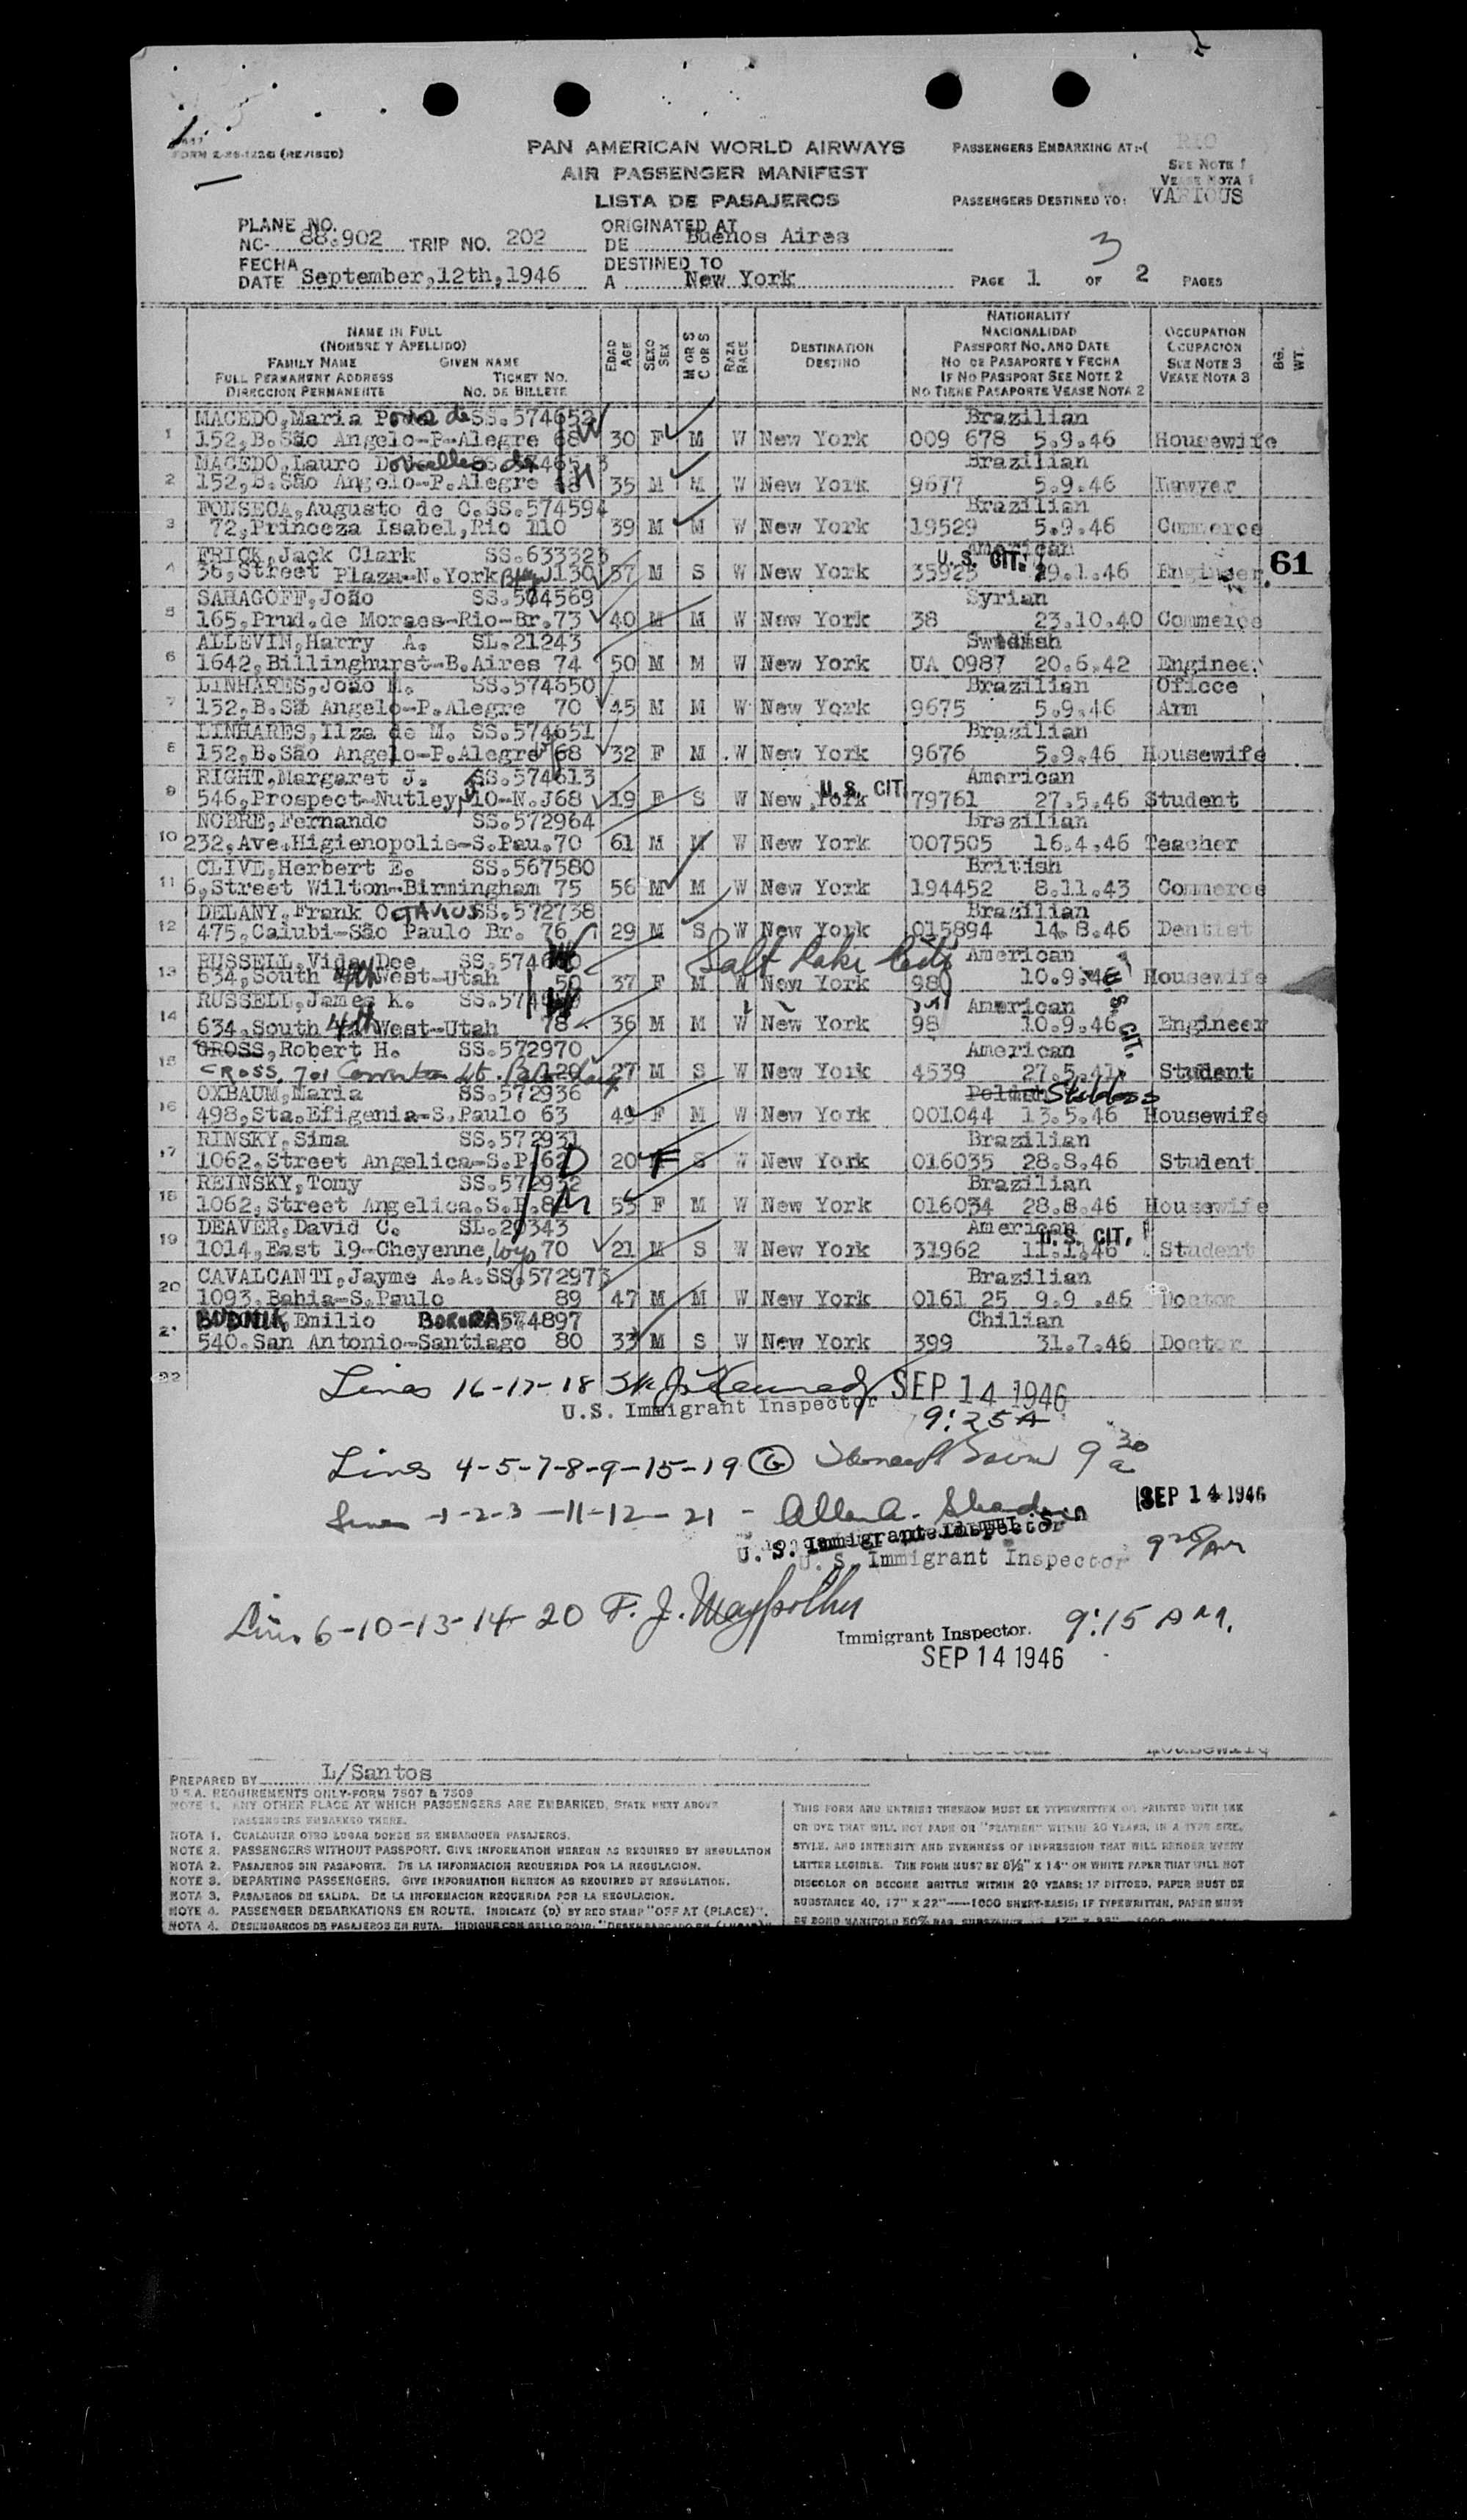 FORM (REVISED)
PAN AMERICAN WORLD AIRWAYS
AIR PASSENGER MANIFEST
LISTA DE PASAJEROS
PASSENGERS EMBARKING AT:-( RIO
SEE NOTE 1
VEASE NOTA 1
PASSENGERS DESTINED TO: VARIOUS
PLANE NO. NC- 88.902 TRIP NO. 202
ORIGINATED AT DE Buenos Aires
FECHA DATE September,12th,1946
DESTINED TO A New York
3
PAGE 1 OF 2 PAGES
NAME IN FULL
(NOMBRE Y APELLIDO)
FAMILY NAME GIVEN NAME
FULL PERMANENT ADDRESS TICKET NO.
DIRECCION PERMANENTE NO. DE BILLETE
EDAD AGE
SEXO SEX
M OR S C OR S
RAZA RACE
DESTINATION DESTINO
NATIONALITY
NACIONALIDAD
PASSPORT NO. AND DATE
NO DE PASAPORTE Y FECHA
IF NO PASSPORT SEE NOTE 2
NO TIENE PASAPORTE VEASE NOTA 2
OCCUPATION
OCUPACION
SEE NOTE 3
VEASE NOTA 3
BG. WT.
MACEDO,Maria de SS.574652 Brazilian
1 152,B.São Angelo-P-Alegre 68 W 30 F M W New York 009 678 5.9.46 Housewife
MACEDO,Lauro de Brazilian
2 152,B.São Angelo-P.Alegre H 35 M M W New York 9677 5.9.46 Lawyer
FONSECA,Augusto de C.SS.574594 Brazilian
3 72,Princeza Isabel,Rio 110 39 M M W New York 19529 5.9.46 Commerce
FRICK,Jack Clark American U.S. CIT.
4 36,Street Plaza-N.York 130 57 M S W New York 1.46 Engineer 61
SAHAGOFF,João SS.574569 Syrian
5 165,Prud.de Moraes-Rio-Br.73 40 M M W New York 38 23.10.40 Commerce
ALLEVIN,Harry A. SL.21243 Swedish
6 1642,Billinghurst-B.Aires 74 50 M M W New York UA 0987 20.6.42 Engineer
LINHARES,João M. SS.574650 Brazilian Oficce
7 152,B.São Angelo-P.Alegre 70 45 M M W New York 9675 5.9.46 Arm
LINHARES,Ilza de M. SS.574651 Brazilian
8 152,B.São Angelo-P.Alegre 68 32 F M W New York 9676 5.9.46 Housewife
RIGHT,Margaret J. SS.574613 U.S. CIT. American
9 546,Prospect-Nutley,10-N.J68 19 F S W New York 79761 27.5.46 Student
NOBRE,Fernando SS.572964 Brazilian
10 232,Ave.Higienopolis-S.Pau.70 61 M M W New York 007505 16.4.46 Teacher
CLIVE,Herbert E. SS.567580 British
11 6,Street Wilton-Birmingham 75 56 M M W New York 194452 8.11.43 Commerce
DELANY,Frank OCTAVIUS SS.572738 Brazilian
12 475,Caiubi-São Paulo Br. 76 29 M S W New York 015894 14.8.46 Dentist
RUSSELL,Vida Dee W Salt Lake City American
13 634,South 4th West-Utah 50 37 F M W New York 980 10.9.46 Housewife
RUSSELL,James K. H American U.S. CIT.
14 634,South 4th West-Utah 78 36 M M W New York 98 10.9.46 Engineer
GROSS,Robert H. SS.572970 American
15 CROSS. 701 27 M S W New York 4539 27.5.41 Student
OXBAUM,Maria SS.572936 Polish Stateless
16 498,Sta.Efigenia-S.Paulo 63 49 F M W New York 001044 13.5.46 Housewife
RINSKY,Sima SS.572931 Brazilian
17 1062,Street Angelica-S.P.62 D 20 F S W New York 016035 28.8.46 Student
REINSKY,Tomy SS.572932 Brazilian
18 1062,Street Angelica.S.P.8 M 53 F M W New York 016034 28.8.46 Housewife
DEAVER,David C. SL.20343 American U.S. CIT.
19 1014,East 19-Cheyenne,Wyo 70 21 M S W New York 31962 11.1.46 Student
CAVALCANTI,Jayme A.A.SS.572973 Brazilian
20 1093,Bahia-S.Paulo 89 47 M M W New York 0161 25 9.9 .46 Doctor
BUDNIK, Emilio 574897 Chilian
21 540.San Antonio-Santiago 80 33 M S W New York 399 31.7.46 Doctor
22
Lines 16-17-18 J. Kennedy SEP 14 1946
U.S. Immigrant Inspector 9:25 A
Lines 4-5-7-8-9-15-19 9 30 a
Lines -1-2-3-11-12-21 - Allen A. SEP 14 1946
U.S. Immigrant Inspector
U. S. Immigrant Inspector
Lines 6-10-13-14-20 F. J. 9:15 AM.
Immigrant Inspector.
SEP 14 1946
PREPARED BY L/Santos
U.S.A. REQUIREMENTS ONLY-FORM 7507 & 7509
NOTE 1. ANY OTHER PLACE AT WHICH PASSENGERS ARE EMBARKED, STATE NEXT ABOVE
PASSENGERS EMBARKED THERE.
NOTA 1. CUALQUIER OTRO LUGAR DONDE SE EMBARQUEN PASAJEROS.
NOTE 2. PASSENGERS WITHOUT PASSPORT. GIVE INFORMATION HEREON AS REQUIRED BY REGULATION
NOTA 2. PASAJEROS SIN PASAPORTE. DE LA INFORMACION REQUERIDA POR LA REGULACION.
NOTE 3. DEPARTING PASSENGERS. GIVE INFORMATION HEREON AS REQUIRED BY REGULATION.
NOTA 3. PASAJEROS DE SALIDA. DE LA INFORMACION REQUERIDA POR LA REGULACION.
NOTE 4. PASSENGER DEBARKATIONS EN ROUTE. INDICATE (D) BY RED STAMP "OFF AT (PLACE)".
NOTA 4. DESEMBARCOS DE PASAJEROS EN RUTA. INDIQUE CON SELLO ROJO.
THIS FORM AND ENTRIES THEREON MUST BE TYPEWRITTEN OR PRINTED WITH INK
OR DYE THAT WILL NOT FADE OR "FEATHER" WITHIN 20 YEARS, IN A TYPE SIZE,
STYLE, AND INTENSITY AND EVENNESS OF IMPRESSION THAT WILL RENDER EVERY
LETTER LEGIBLE. THE FORM MUST BE 8½" X 14" ON WHITE PAPER THAT WILL NOT
DISCOLOR OR BECOME BRITTLE WITHIN 20 YEARS; IF DITTOED, PAPER MUST BE
SUBSTANCE 40, 17" X 22"—1000 SHEET-BASIS; IF TYPEWRITTEN, PAPER MUST
BE BOND MANIFOLD 50% RAG, SUBSTANCE